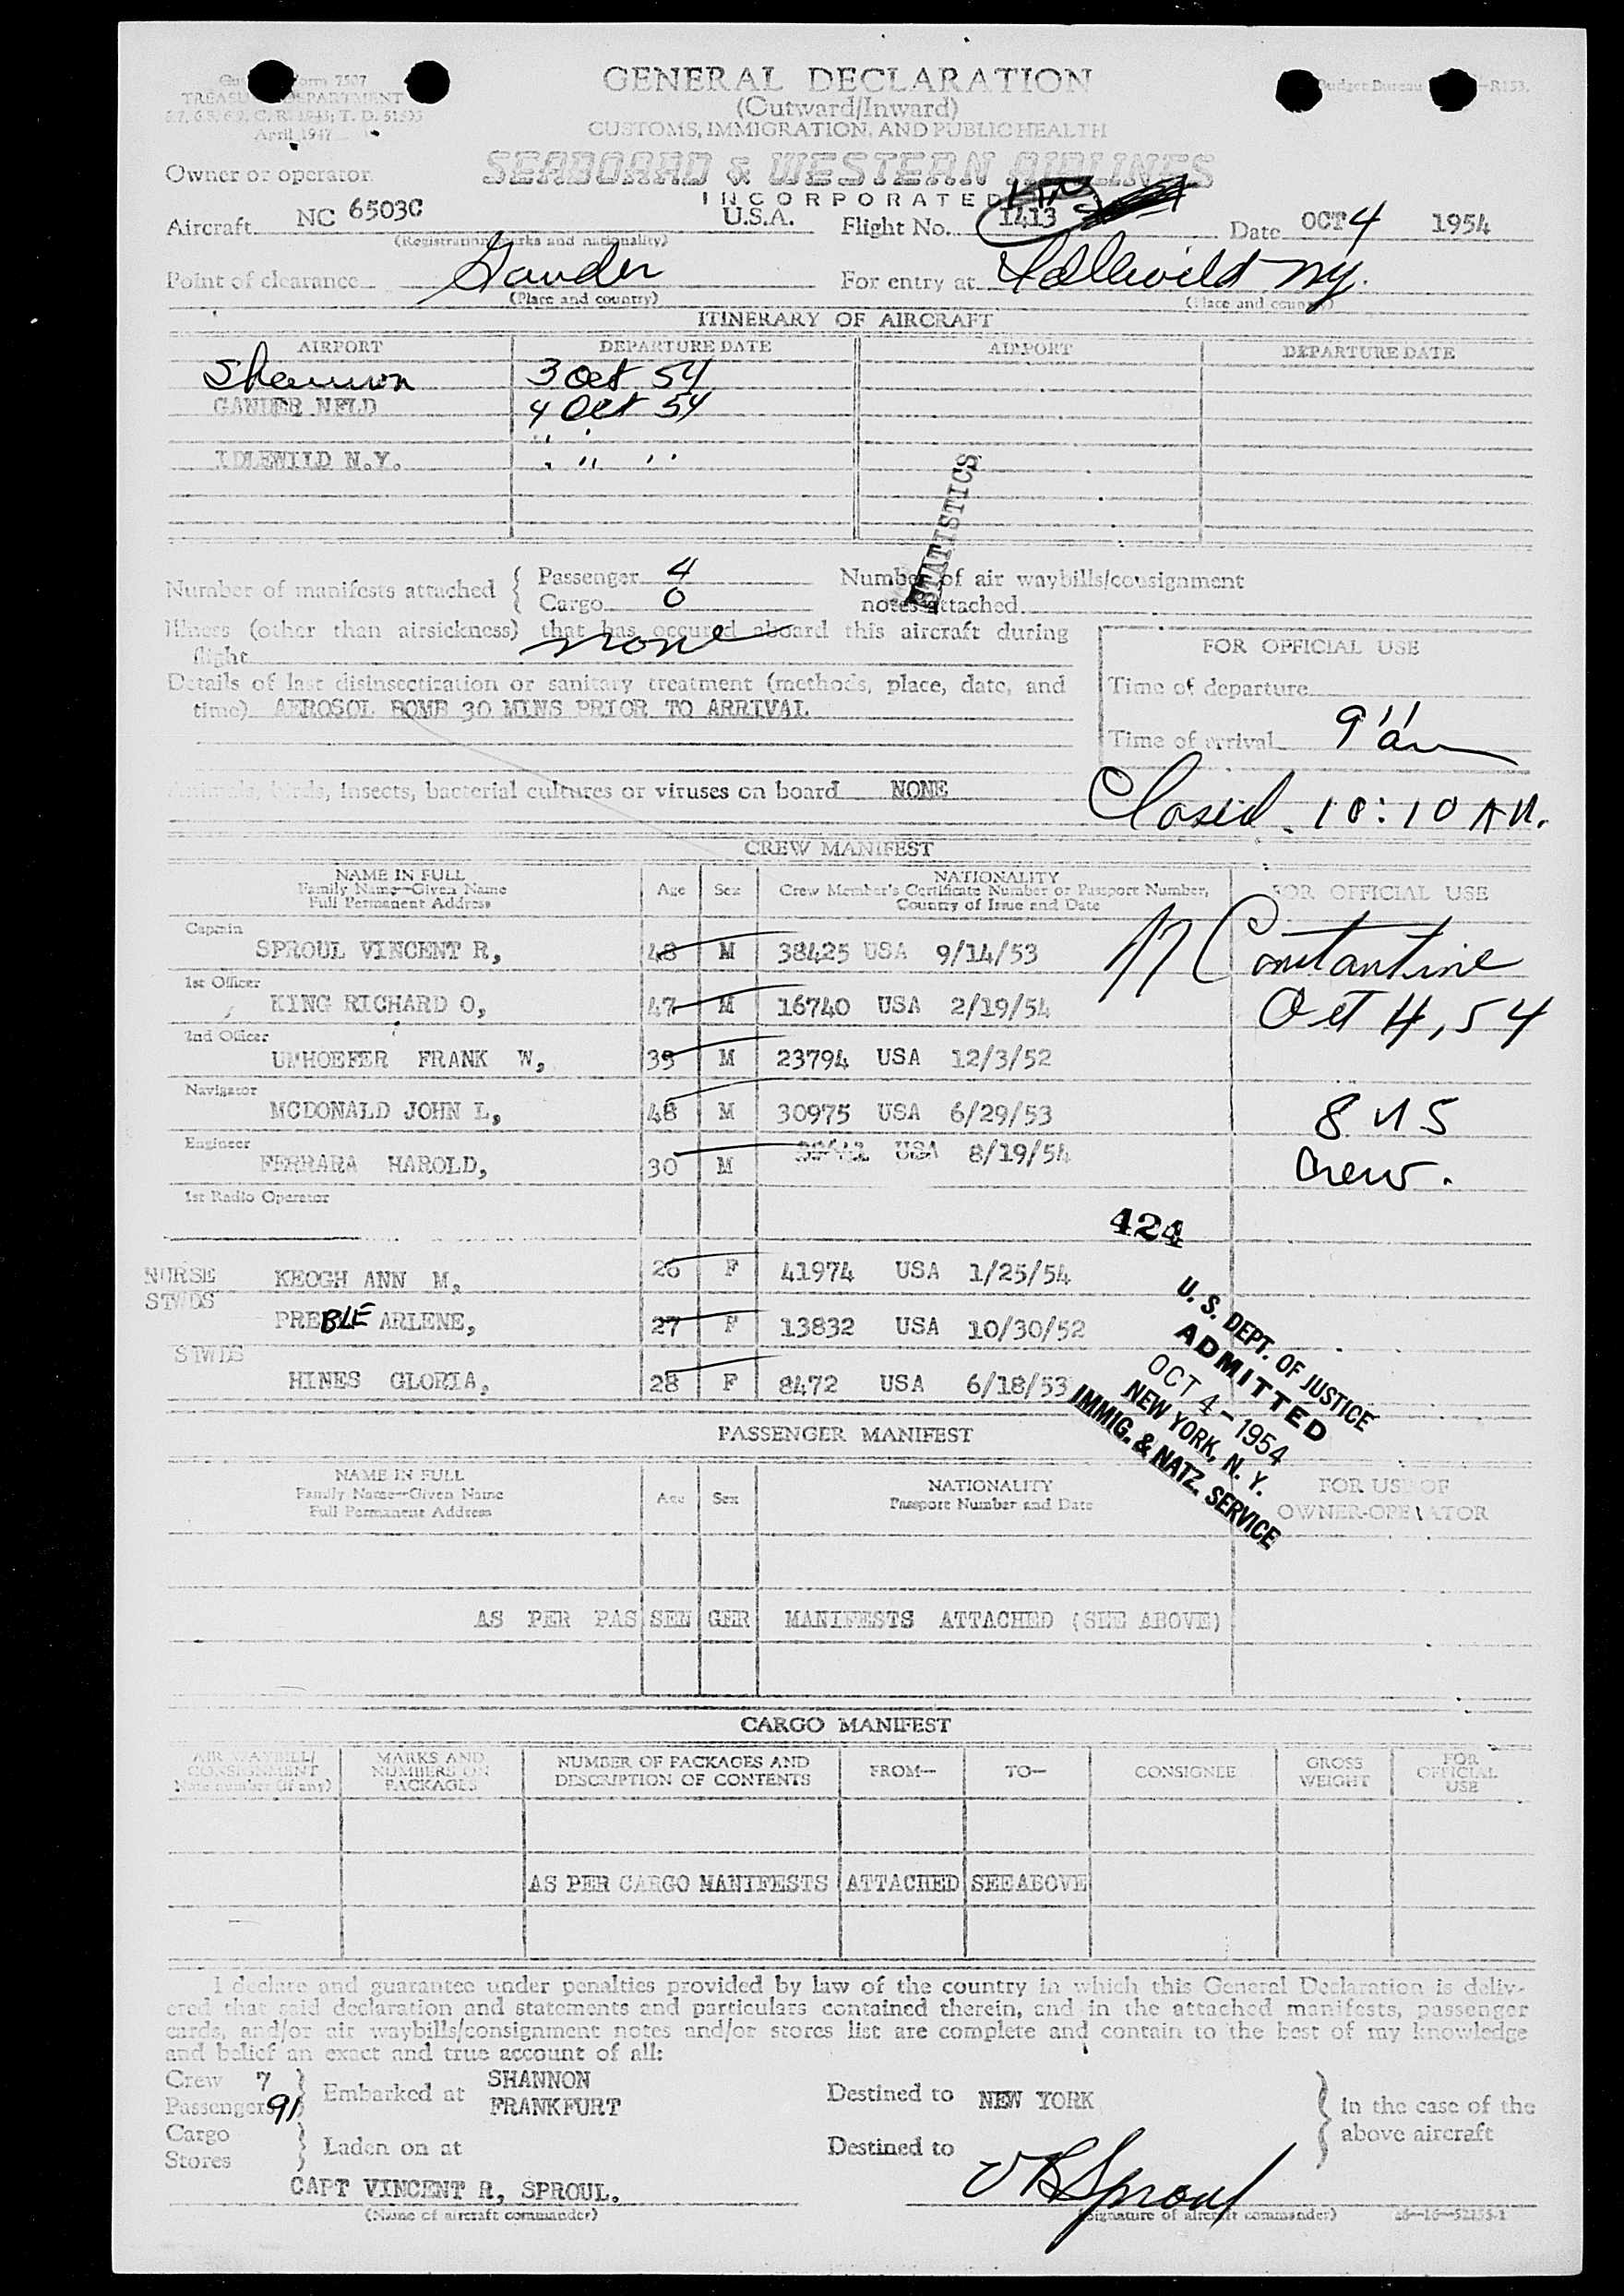 Form 7507
TREASURY DEPARTMENT
April 1947
GENERAL DECLARATION
(Outward/Inward)
CUSTOMS, IMMIGRATION, AND PUBLIC HEALTH
Budget Bureau -R153.
Owner or operator
SEABOARD & WESTERN AIRLINES
INCORPORATED
Aircraft NC 6503C U.S.A. Flight No. 1413 Date OCT 4 1954
(Registration marks and nationality)
Point of clearance Gander For entry at Idlewild NY.
(Place and country) (Place and country)
ITINERARY OF AIRCRAFT
AIRPORT DEPARTURE DATE AIRPORT DEPARTURE DATE
Shannon 3 Oct 54
GANDER NFLD 4 Oct 54
IDLEWILD N.Y. " "
STATISTICS
Number of manifests attached { Passenger 4 Number of air waybills/consignment
Cargo 0 notes attached
Illness (other than airsickness) that has occured aboard this aircraft during
flight none
FOR OFFICIAL USE
Details of last disinsectization or sanitary treatment (methods, place, date, and
time) AEROSOL BOMB 30 MINS PRIOR TO ARRIVAL
Time of departure
Time of arrival 9 11 am
Animals, birds, insects, bacterial cultures or viruses on board NONE
Closed. 10:10 AM.
CREW MANIFEST
NAME IN FULL
Family Name—Given Name
Full Permanent Address
Age Sex
NATIONALITY
Crew Member's Certificate Number or Passport Number,
Country of Issue and Date
FOR OFFICIAL USE
Captain
SPROUL VINCENT R, 48 M 38425 USA 9/14/53
N Constantine
1st Officer
KING RICHARD O, 47 M 16740 USA 2/19/54
Oct 4, 54
2nd Officer
UMHOEFER FRANK W, 39 M 23794 USA 12/3/52
Navigator
MCDONALD JOHN L, 48 M 30975 USA 6/29/53
8 US
Engineer
FERRARA HAROLD, 30 M USA 8/19/54
Crew.
1st Radio Operator
424
NURSE KEOGH ANN M, 26 F 41974 USA 1/25/54
STWDS
PREBLE ARLENE, 27 F 13832 USA 10/30/52
STWDS
HINES GLORIA, 28 F 8472 USA 6/18/53
U. S. DEPT. OF JUSTICE
ADMITTED
OCT 4 - 1954
NEW YORK, N. Y.
IMMIG. & NATZ. SERVICE
PASSENGER MANIFEST
NAME IN FULL
Family Name—Given Name
Full Permanent Address
Age Sex
NATIONALITY
Passport Number and Date
FOR USE OF
OWNER-OPERATOR
AS PER PASSENGER MANIFESTS ATTACHED (SEE ABOVE)
CARGO MANIFEST
AIR WAYBILL/
CONSIGNMENT
Note number (if any)
MARKS AND
NUMBERS ON
PACKAGES
NUMBER OF PACKAGES AND
DESCRIPTION OF CONTENTS
FROM—
TO—
CONSIGNEE
GROSS
WEIGHT
FOR
OFFICIAL
USE
AS PER CARGO MANIFESTS ATTACHED SEE ABOVE
I declare and guarantee under penalties provided by law of the country in which this General Declaration is deliv-
ered that said declaration and statements and particulars contained therein, and in the attached manifests, passenger
cards, and/or air waybills/consignment notes and/or stores list are complete and contain to the best of my knowledge
and belief an exact and true account of all:
Crew 7
Passengers 91
Embarked at SHANNON
FRANKFURT
Destined to NEW YORK
In the case of the
above aircraft
Cargo
Stores
Laden on at
Destined to
CAPT VINCENT R, SPROUL.
V R Sproul
(Name of aircraft commander) (Signature of aircraft commander) 16—52155-1